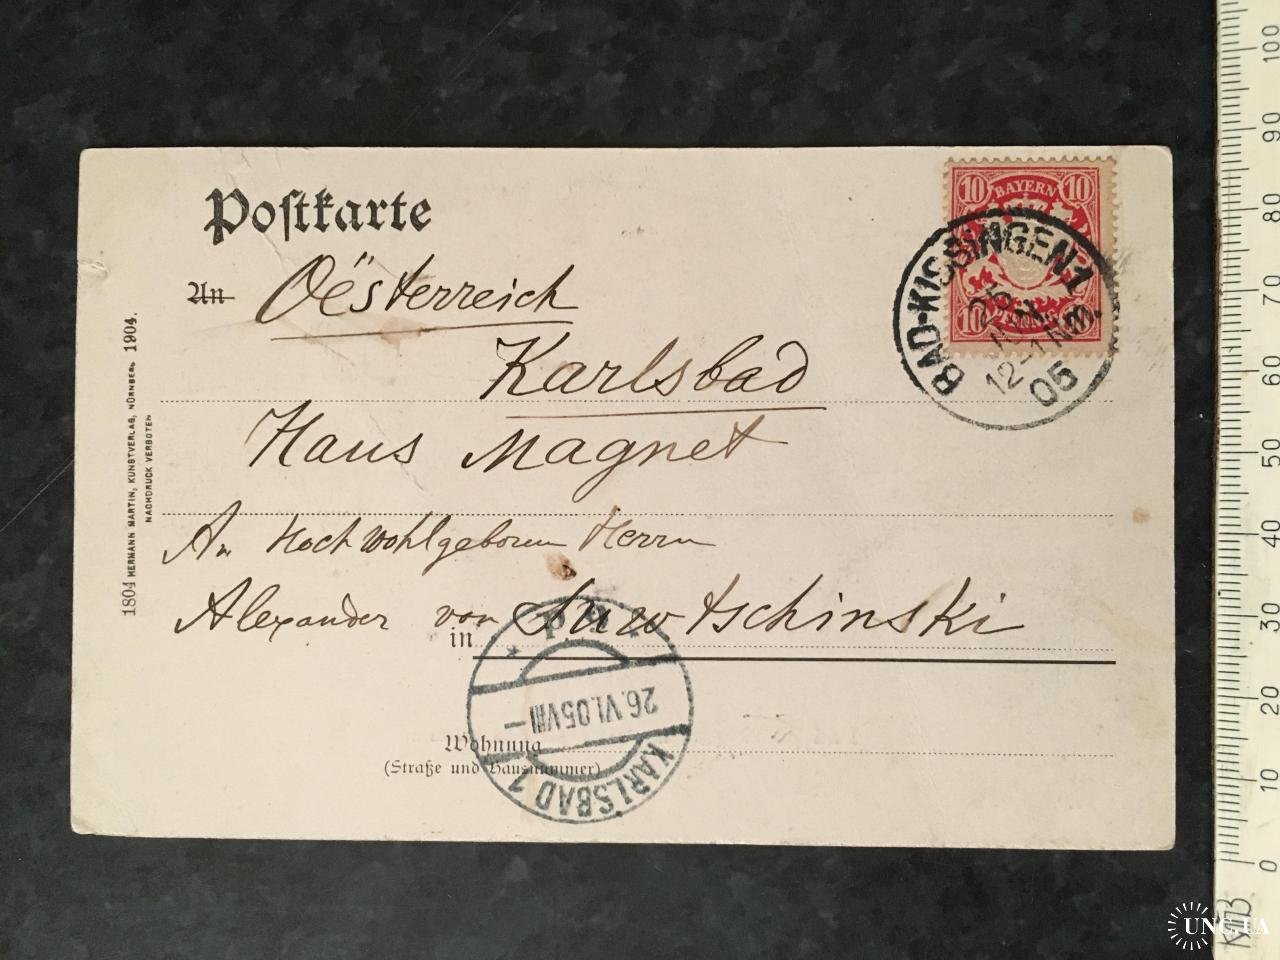 Postkarte
An
Oësterreich
Karlsbad
Haus Magnet
An Hochwohlgeboren Herrn
Alexander von Suwtschinski
in
Wohnung
(Straße und Hausnummer)
1804 HERMANN MARTIN, KUNSTVERLAG, NÜRNBERG 1904.
NACHDRUCK VERBOTEN
10 BAYERN 10
10 PFENNIG
BAD-KISSINGEN 1
25
12-1 Nm.
05
26.VI.05 VIII-
KARLSBAD 1
100
90
80
70
60
50
40
30
20
10
0
UNC.UA